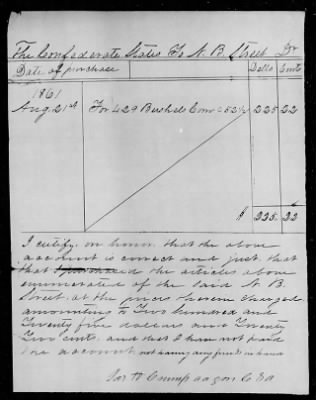 The Confederate States To N. B. Street Dr
Date of purchase Dolls Cents
1861
Aug. 21st For 429 Bushels Corn @ 52½ 225 22
$ 225. 22
I certify on honor that the above
account is correct and just, that
that I purchased the articles above
enumerated of the said N. B.
Street, at the prices therein charged
amounting to Two hundred and
Twenty five dollars and Twenty
Two cents, and that I have not paid
the account, not having any funds in hand
Crump